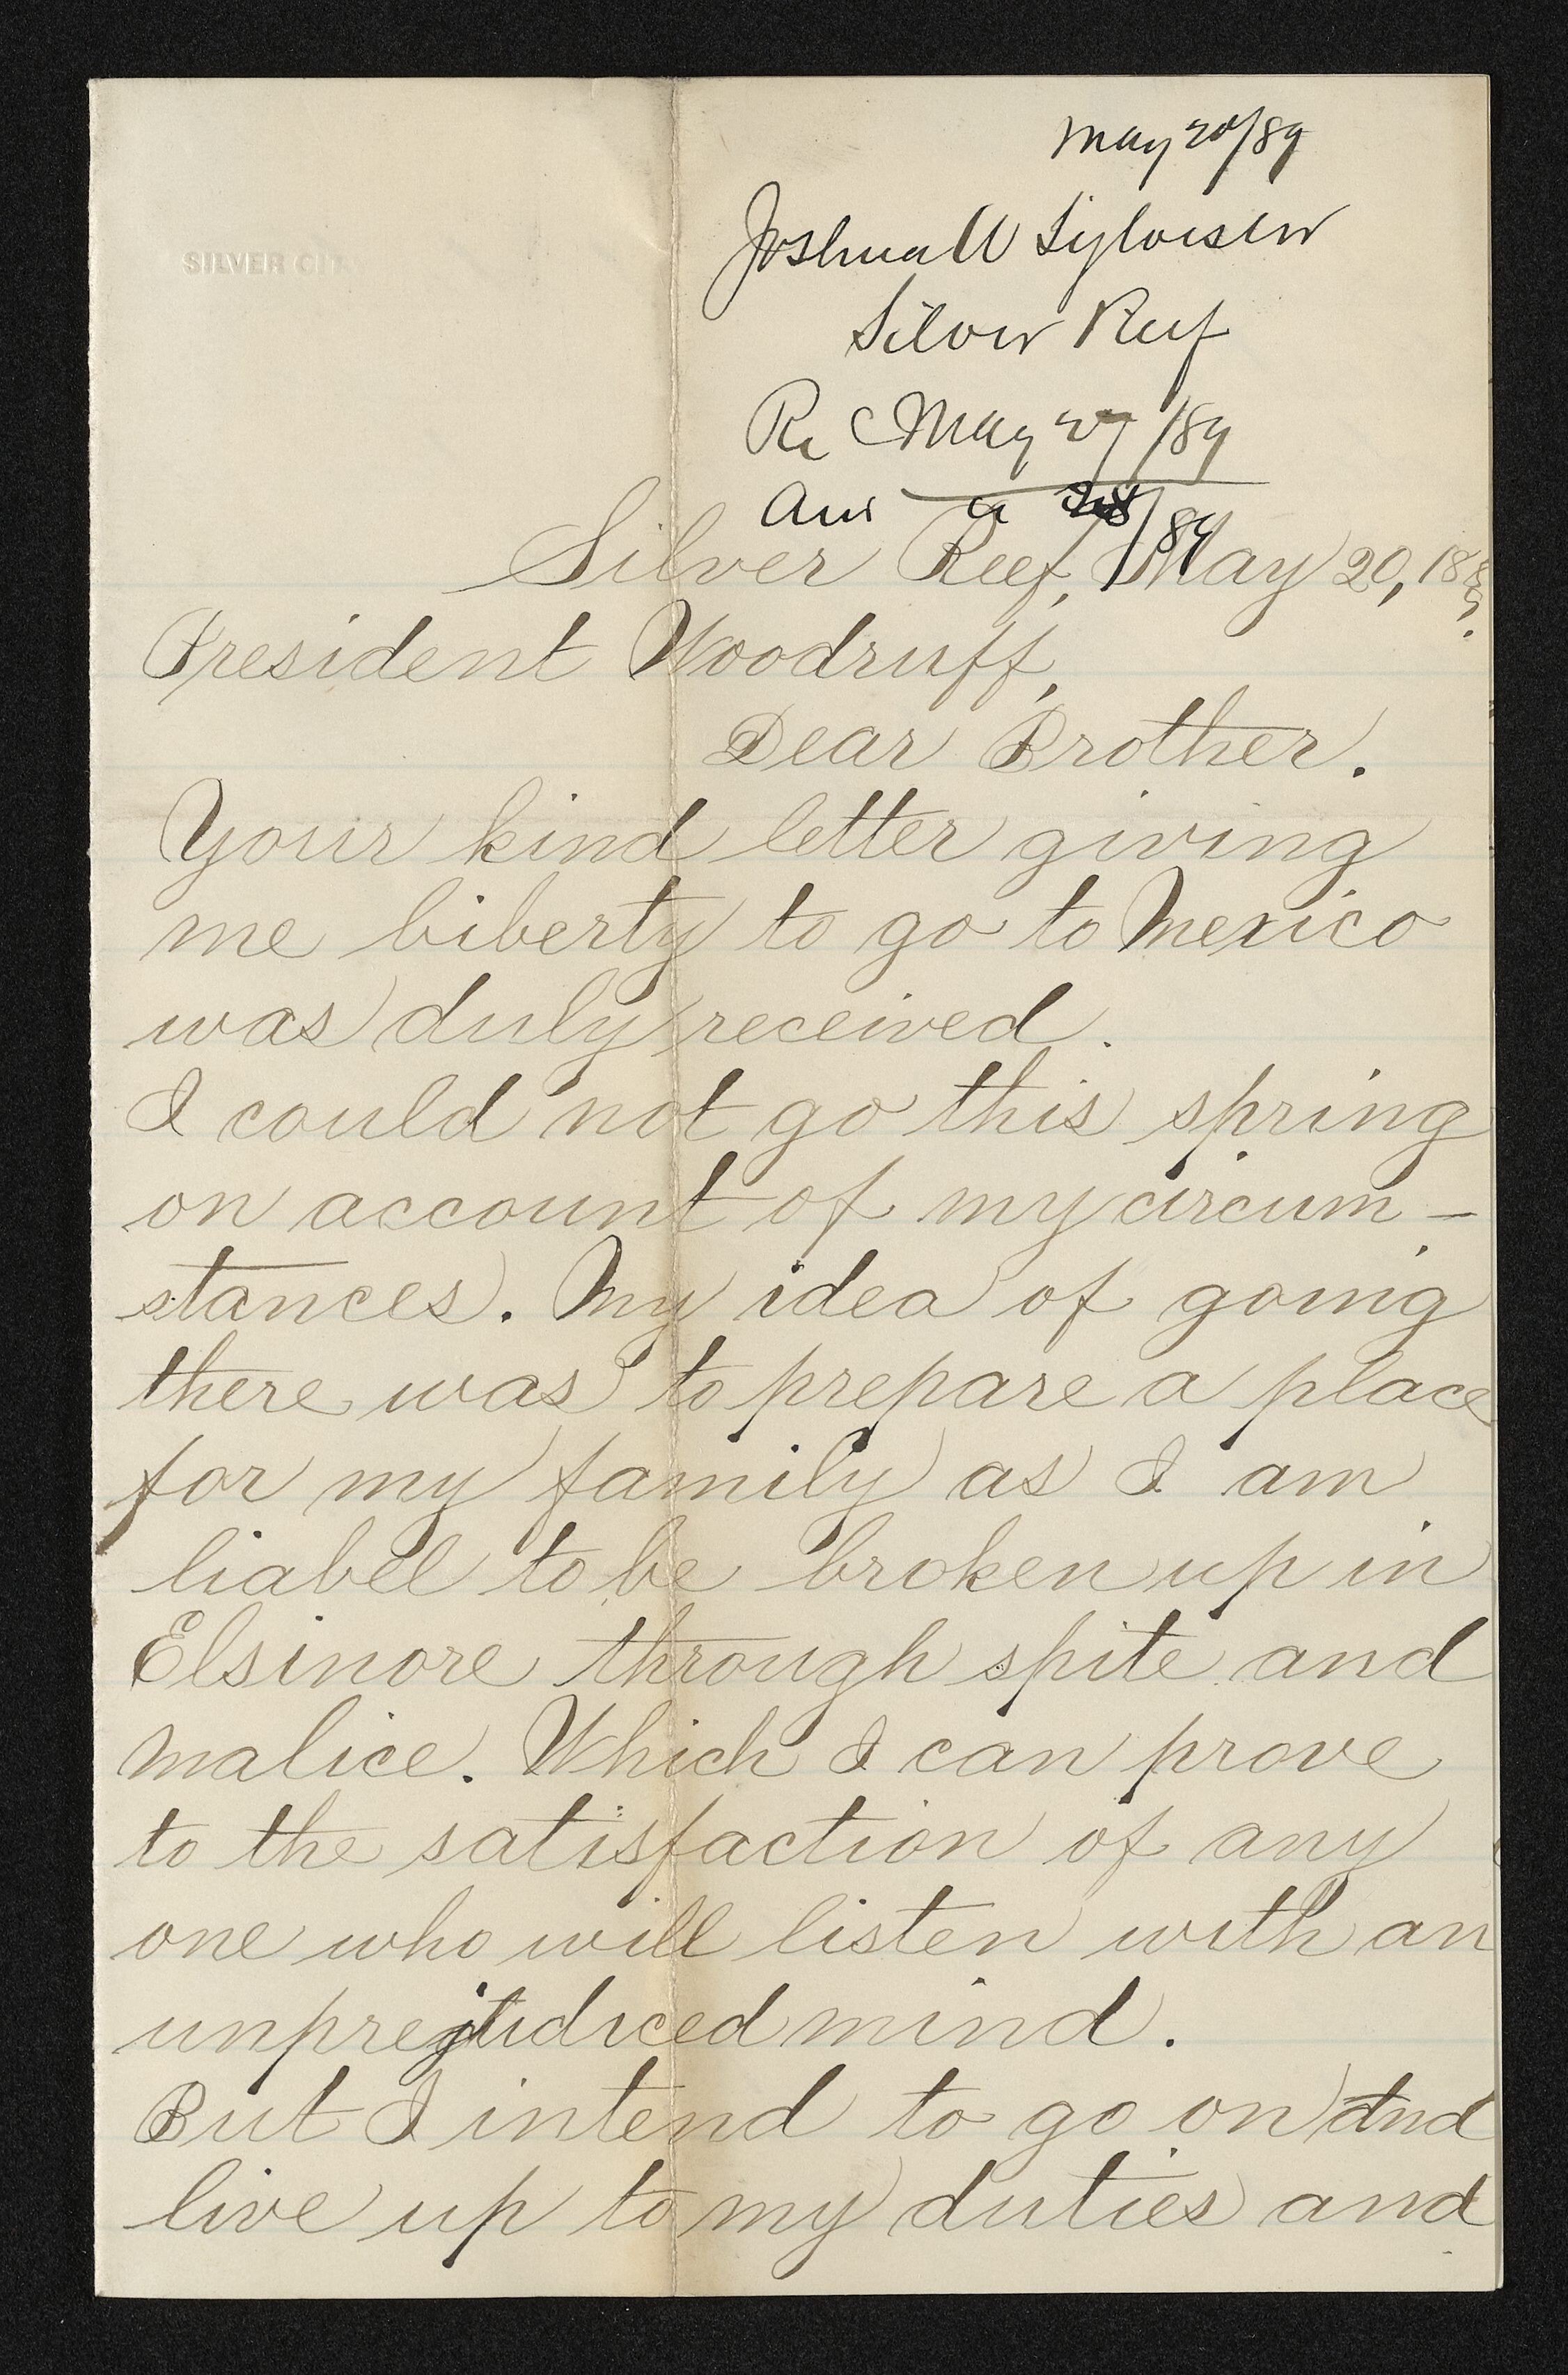 SILVER CI
May 20/89
Joshua W Sylvester
Silver Reef
Rec May 27/89
Ans " 28/89
Silver Reef, May 20, 1889.
President Woodruff,
Dear Brother.
Your kind letter giving
me biberty to go to Mexico
was duly received.
I could not go this spring
on account of my circum-
stances. My idea of going
there was to prepare a place
for my family as I am
liabel to be broken up in
Elsinore through spite and
malice. Which I can prove
to the satisfaction of any
one who will listen with an
unprejudiced mind.
But I intend to go on and
live up to my duties and